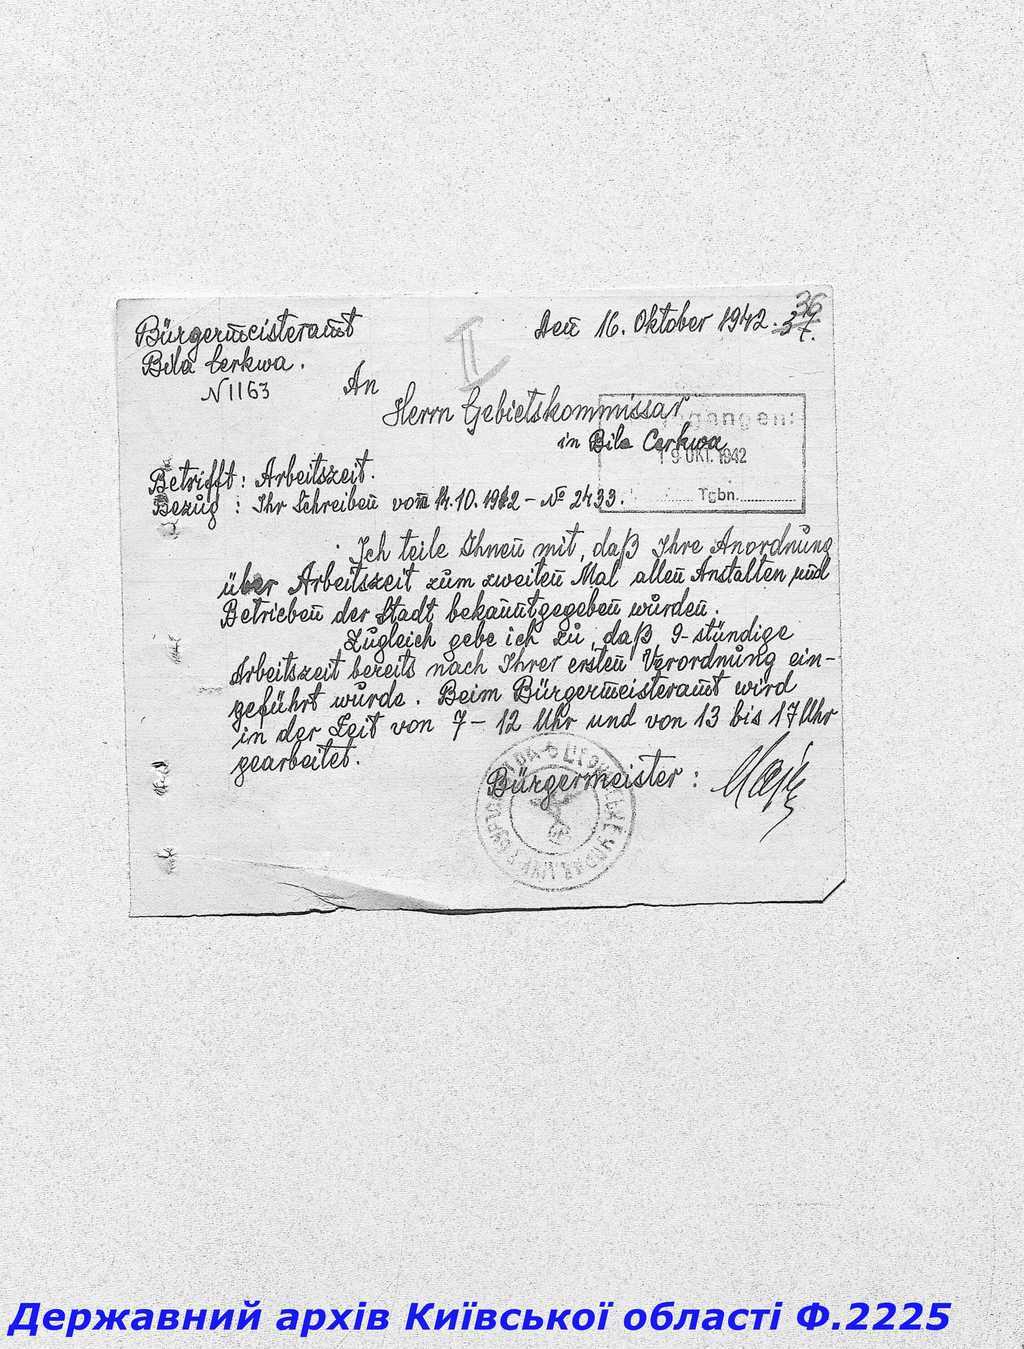 Bürgermeisteramt
Bila Cerkwa.
N 1163
Den 16. Oktober 1942.
36
37.
II
An
Herrn Gebietskommissar
in Bila Cerkwa
19 OKT. 1942
Tgbn.
Betrifft: Arbeitszeit.
Bezug: Ihr Schreiben vom 14.10.1942 - № 2433.
Ich teile Ihnen mit, daß Ihre Anordnung
über Arbeitszeit zum zweiten Mal allen Anstalten und
Betrieben der Stadt bekanntgegeben wurden.
Zugleich gebe ich zu, daß 9-stündige
Arbeitszeit bereits nach Ihrer ersten Verordnung ein-
geführt wurde. Beim Bürgermeisteramt wird
in der Zeit von 7 - 12 Uhr und von 13 bis 17 Uhr
gearbeitet.
Bürgermeister:
Державний архів Київської області Ф.2225